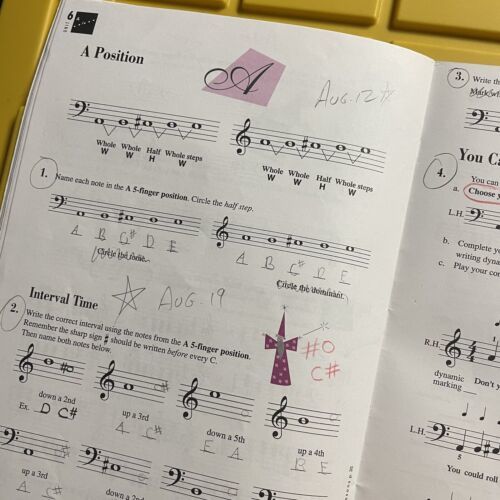 6
A Position
A
AUG. 12
Whole Whole Half Whole steps
W W H W
Whole Whole Half Whole steps
W W H W
1.
Name each note in the A 5-finger position. Circle the half step.
A B C# D E
A B C# D E
Circle the tonic.
Circle the dominant.
Interval Time
AUG. 19
2.
Write the correct interval using the notes from the A 5-finger position.
Remember the sharp sign ♯ should be written before every C.
Then name both notes below.
#O
C#
down a 2nd
up a 3rd
down a 5th
up a 4th
Ex. D C#
A C#
E A
B E
up a 3rd
down a 2nd
A C#
3.
Write th
You Ca
4.
You can
a. Choose y
L.H.
b. Complete y
writing dyna
c. Play your co
R.H.
4
4
dynamic
marking
Don't y
L.H.
5
You could roll